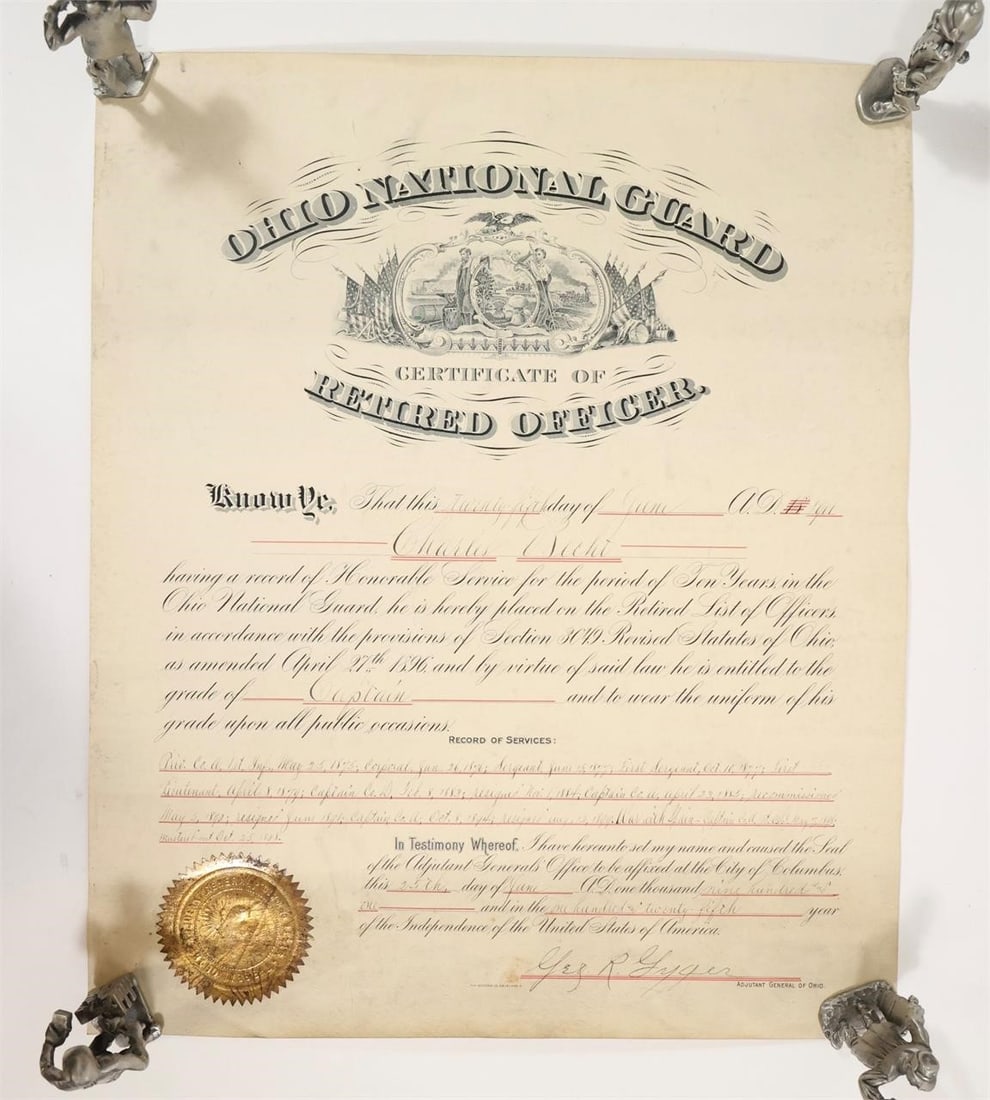 OHIO NATIONAL GUARD
CERTIFICATE OF
RETIRED OFFICER.
Know Ye, That this Twenty fifth day of June A.D. 1901
Charles
having a record of Honorable Service for the period of Ten Years, in the
Ohio National Guard, he is hereby placed on the Retired List of Officers,
in accordance with the provisions of Section 3049, Revised Statutes of Ohio,
as amended April 27th 1896, and by virtue of said law he is entitled to the
grade of Captain and to wear the uniform of his
grade upon all public occasions.
RECORD OF SERVICES:
Priv. Co. A, 1st Inf., May 25, 1875; Corporal, Jan. 26, 1876; Sergeant, June 1877; First Sergeant, Oct. 10, 1877; First
Lieutenant, April 8, 1879; Captain Co. D, Feb. 8, 1883; resigned 1884; Captain Co. A, April 23, 1885; recommissioned
May 1890; resigned June 1891; Captain Co. A, Oct. 8, 1894; resigned War with Spain - Captain
mustered out Oct. 25, 1898.
In Testimony Whereof, I have hereunto set my name and caused the Seal
of the Adjutant General's Office to be affixed at the City of Columbus,
this 25th day of June A.D. one thousand nine hundred and
one and in the one hundred & twenty-fifth year
of the Independence of the United States of America.
Geo. R. Gyger
ADJUTANT GENERAL OF OHIO.